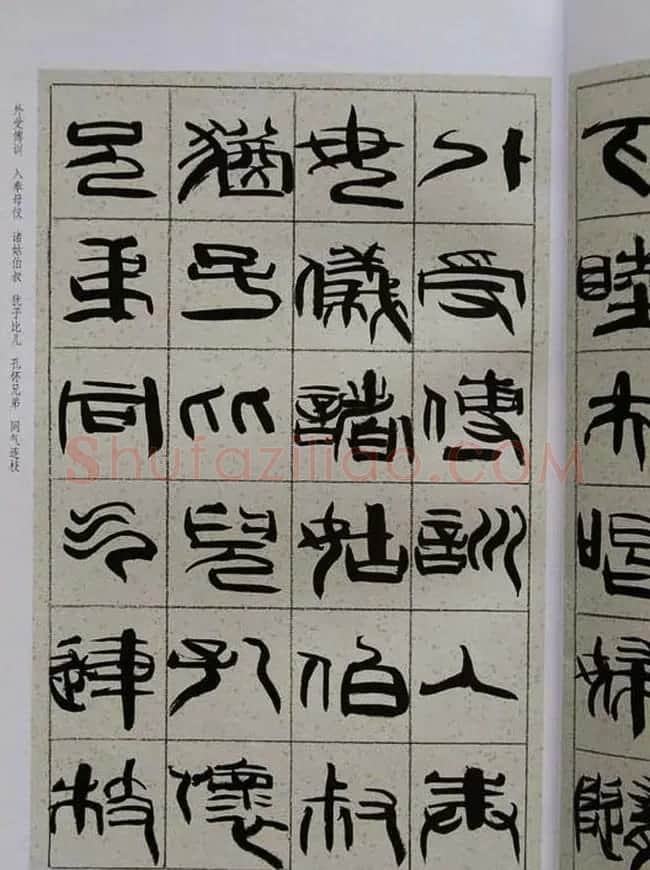 下睦夫唱婦隨
外受傅訓入奉
母儀諸姑伯叔
猶子比兒孔懷
兄弟同气連枝
外受傅训 入奉母仪 诸姑伯叔 犹子比儿 孔怀兄弟 同气连枝
Shufaziliao.COM